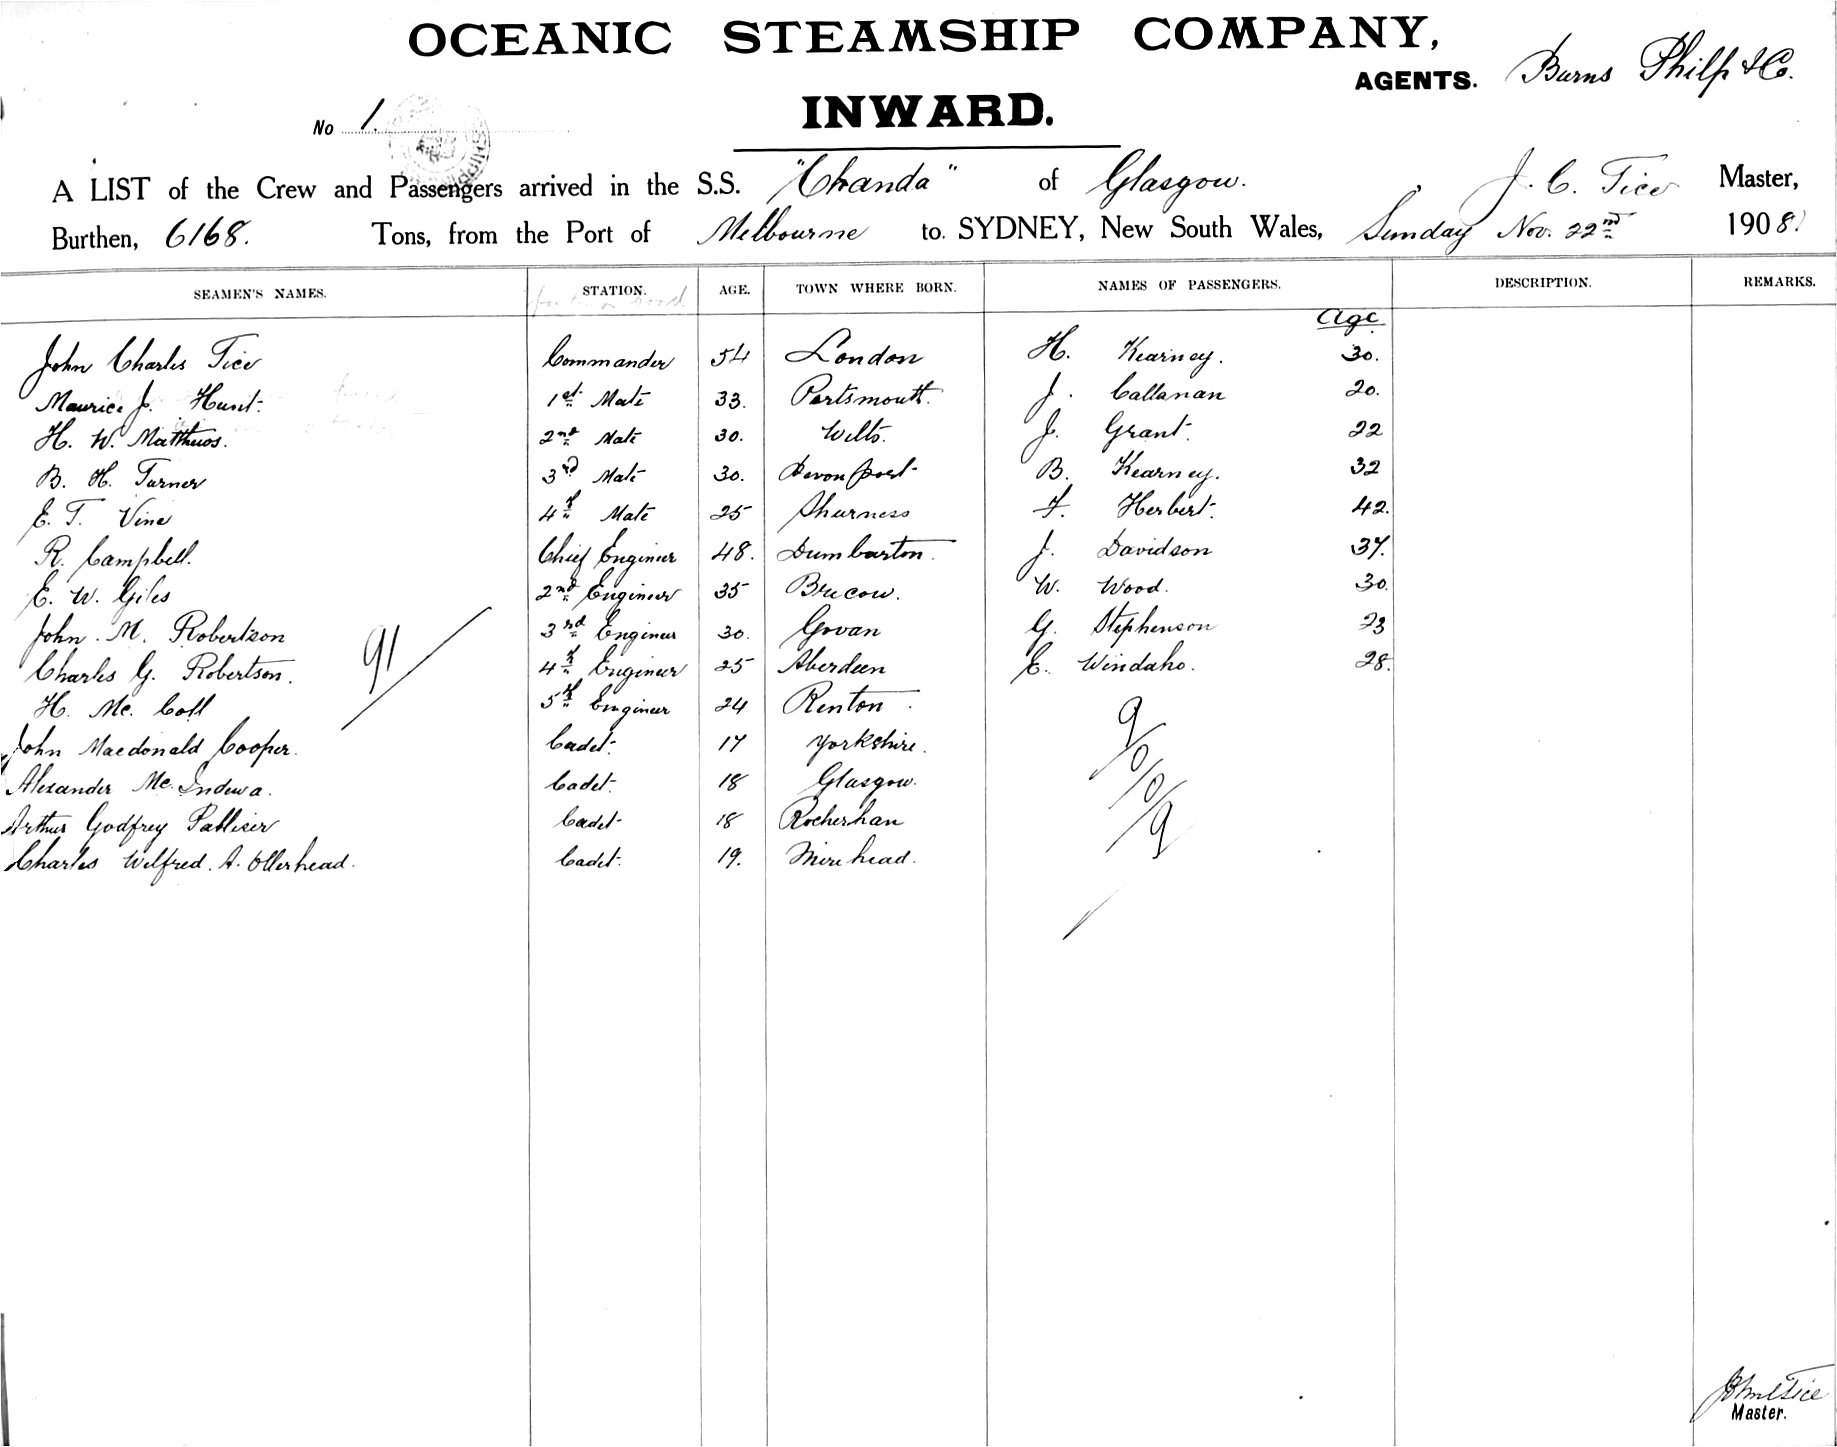 OCEANIC STEAMSHIP COMPANY,
AGENTS. Burns Philp & Co.
INWARD.
No 1.
A LIST of the Crew and Passengers arrived in the S.S. "Chanda" of Glasgow. J. C. Tice Master,
Burthen, 6168. Tons, from the Port of Melbourne to SYDNEY, New South Wales, Sunday Nov. 22nd 1908.
SEAMEN'S NAMES. STATION. AGE. TOWN WHERE BORN. NAMES OF PASSENGERS. DESCRIPTION. REMARKS.
Age
John Charles Tice Commander 54 London H. Kearney. 30.
Maurice J. Hunt. 1st Mate 33. Portsmouth. J. Callanan 20.
H. W. Matthews. 2nd Mate 30. Wilts. J. Grant. 22
B. H. Turner 3rd Mate 30. Devonport B. Kearney. 32
E. T. Vine 4th Mate 25 Shurness F. Herbert. 42.
R. Campbell. Chief Engineer 48. Dumbarton. J. Davidson 37.
E. W. Giles 2nd Engineer 35 W. Wood. 30.
John. M. Robertson 3rd Engineer 30. Govan G. Stephenson 23
Charles G. Robertson. 4th Engineer 25 Aberdeen E. 28.
91
H. Mc. Coll 5th Engineer 24 Renton.
John Macdonald Cooper. Cadet. 17 Yorkshire.
Alexander Mc. Cadet. 18 Glasgow.
Arthur Godfrey Palliser Cadet 18
Charles Wilfred. A. Ollerhead. Cadet. 19.
9
0
0
9
John C Tice
Master.